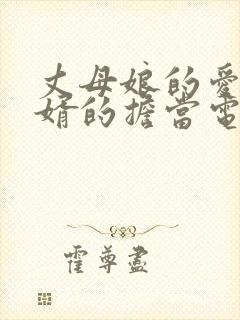 丈母娘的愛
婿的擔當電
霍尊盡